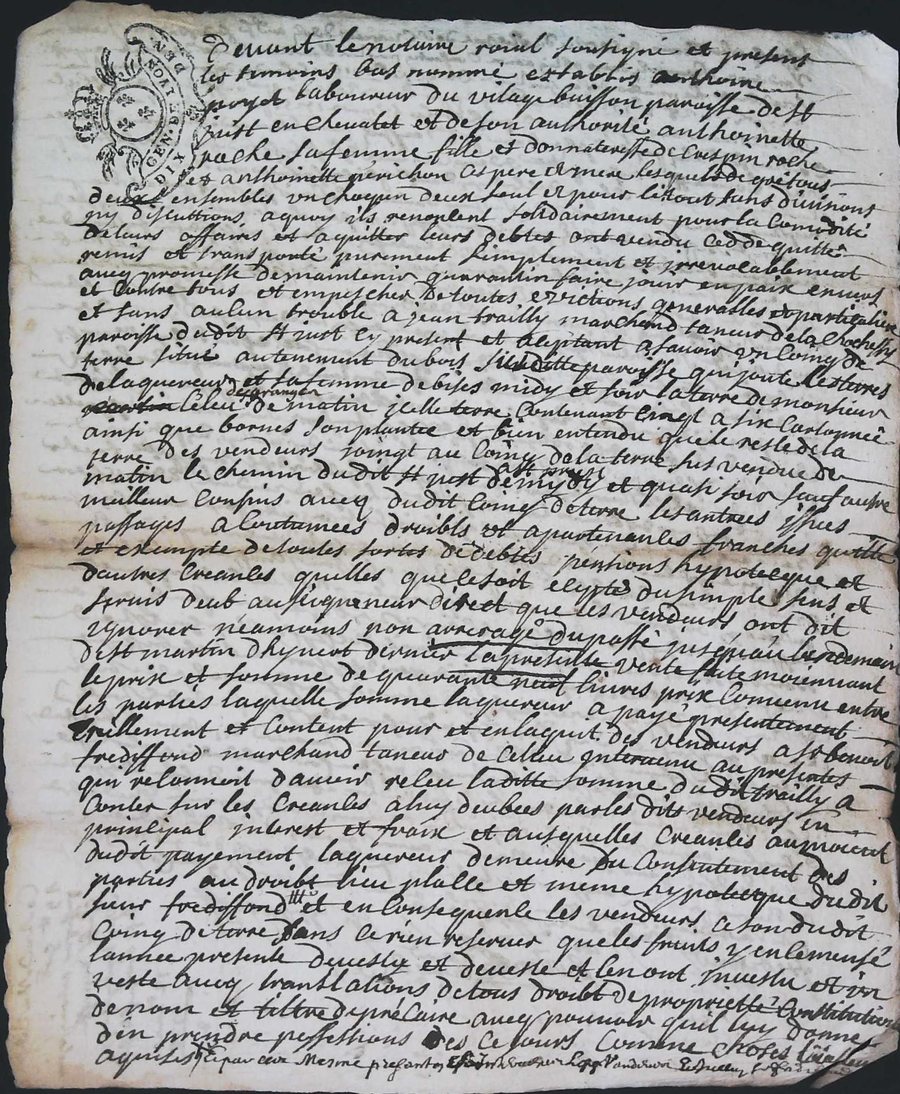 GEN. DE LYON. DIX DEN.
Pervant le notaire roial soussigné et present
les temoins bas nommé establis anthoine
poyet laboureur du vilage buisson paroisse de St
just en chevalet et de son authorité anthoinette
roche sa femme fille et donnateresse de Crespin roche
et anthoinette périchon ses pere et mere lesquels de gré tous
deux ensembles un chaqun deux seul et pour le tout sans divisions
ny discutions aquoy ils renoncent solidairement pour la Comodité
de leurs affaires et aquitter leurs debtes ont vendu cedde quitté
remis et transporté purement simplement et irrevocablement
avecq promesse de maintenir guarantir faire jouir en paix envers
et Contre tous et empescher de toutes evictions generalles et particuliere
et sans aulcun trouble a jean trailly marchand taneur de la
paroisse dudit St just cy present et aceptant a savoir un Coing de
terre situé au tenement du bois susditte paroisse qui joute les terres
de laquereur et sa femme de bises midy et soir la terre de monsieur
de matin icelle terre Contenant Cinq a six Cartonnée
ainsi que bornes son plantée et bien entendu que le reste de la
terre des vendeurs joingt au Coing de la terre sus vendue de
matin le chemin dudit St just de midy et quasi soir sauf autre
meilleur Confins avecq dudit Coing de terre les antrees issues
passages acoutumées droibts et apartenances franches quitte
et exempte de toutes sortes de debtes pentions hypotecque et
dautres Creances quelles que ce soit excepté du simple sens et
servis deub au seigneneur direct que les vendeurs ont dit
ygnorer néamoins non arreragé du passé jusqu'au lendemain
de St martin dhyvert dernier la presente vente faite moiennant
le prix et somme de quarante neuf livres prix Convenu entre
les parties laquelle somme laquereur a payé presentement
reellement et Content pour et en laquit des vendeurs a sr benoit
frediffond marchand taneur de Celieu intervenu au presentes
qui reconnoit davoir receu laditte somme dudit trailly a
Conter sur les Creances a luy deubees par les dits vendeurs in
principal interest et fraix et ausquelles Creances au moient
dudit payement laquereur demeure du Consentement des
parties au droibt lieu plasse et meme hypotecque dudit
sieur frediffond et en Consequence les vendeurs ce son dudit
Coing de terre sans ce rien reserver que les fruits y encemensé
lannée presente devestu et deveste et len ont investu et in
veste avecq translations de tous droibt de proprietté Constitution
de nom et tiltre de précaire avecq pouvoir quil luy donne
den prendre possessions des ce jours Comme choses
aquises